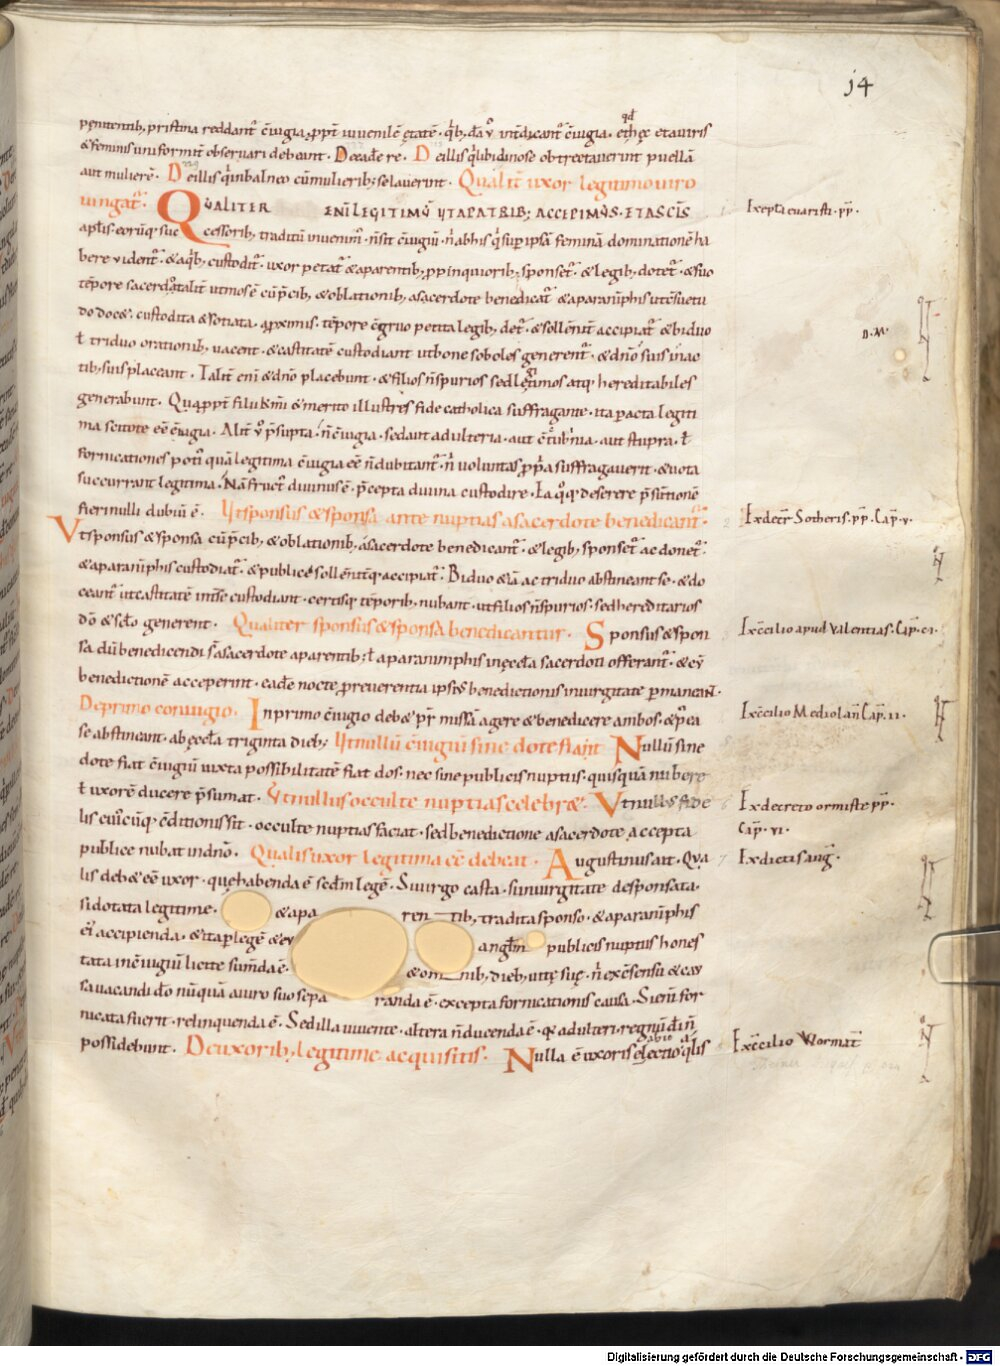 14
penitentib; pristina reddant̄ c̄iugia, ꝓpt̄ iuuenilē ętatē · q̄b; d̄a v̄ uindicant̄ c̄iugia · ethęc etauiris
&feminis uniformit̄ obseruari debeant · De eadē re · De illis q̄ libidinose obtrectauerint puellā
aut mulierē · De illis q̄ inbalneo cū mulierib; selauerint · Qualit̄ uxor legitimo uiro
iungat̄ · QUALITER ENĪ LEGITIMŪ UT A PATRIB; ACCEPIMUS · ET A SCĪS
Ex ep̄la euaristi · pp̄ ·
apl̄is · eorūq; suc cessorib; traditū inuenim̄ · n̄ sit c̄iugiū · n̄ abhis q̄ sup ipsā feminā dominationē ha
bere uident̄ · &aq̄b; custodit̄ · uxor petat̄ &aparentib; ꝓpinquiorib; sponset̄ · &legib; dotet̄ · &suo
tēpore sacerdotalit̄ ut mos ē cū p̄cib; &oblationib; asacerdote benedicat̄ &aparanīphis ut c̄suetu
do docet · custodita &sotiata · aꝓximis · tēpore c̄gruo petita legib; det̄ · &sollēnit̄ accipiat̄ &biduo
ł triduo orationib; uacent · &castitatē custodiant ut bone soboles generent̄ · &dn̄o suis in ac
tib; suis placeant · Talit̄ enī &dn̄o placebunt · &filios n̄ spurios sed legitimos atq; hereditabiles
generabunt · Quapropt̄ filii km̄i &merito illustres fide catholica suffragante · ita peracta legiti
ma scitote eē c̄iugia · Alit̄ v̄ p̄supta · n̄ c̄iugia · sed aut adulteria · aut c̄tub̄nia · aut stupra · ł
fornicationes poti⁹ quā legitima c̄iugia eē n̄ dubitant̄ · n̄ uoluntas ꝓpria suffragauerit · &uota
succurrant legitima · Nā fruct⁹ diuinus ē · p̄cepta diuina custodire · Ea q̄q; deserere p̄sūtionē
fieri nulli dubiū ē · Ut sponsus &sponsa ante nuptias a sacerdote benedicant̄ ·
Ex decr̄ Sotheris · pp̄ · Cap̄ · v ·
Ut sponsus &sponsa cū p̄cib; &oblationib; asacerdote benedicant̄ · &legib; sponset̄ ac donet̄ ·
&aparanīphis custodiat̄ · &publicę sollēnit̄q; accipiat̄ · Biduo etiā ac triduo abstineant se · &do
ceant̄ ut castitatē int̄ se custodiant · certisq; tēporib; nubant · ut filios n̄ spurios · sed hereditarios
dō &scl̄o generent · Qualiter sponsus &sponsa benedicantur · Sponsus &spon
Ex c̄cilio apud Valentias · Cap̄ · ci ·
sa dū benedicendi s̄ a sacerdote aparentib; ł aparanimphis in ęcc̄la sacerdoti offerant̄ · &cū
benedictionē acceperint · eadē nocte, ꝓreuerentia ipsius benedictionis inuirgitate ꝑmaneant ·
De primo coniugio · In primo c̄iugio debet pr̄ missā agere &benedicere ambos · &p̄ea
Ex c̄cilio Mediolan̄ Cap̄ · II ·
se abstineant · ab ęcc̄la triginta dieb; Ut nullū c̄iugiū sine dote fiant Nullū sine
dote fiat c̄iugiū iuxta possibilitatē fiat dos · nec sine publicis nuptiis · quisquā nubere
ł uxorē ducere p̄sumat · Ut nullus occulte nuptias celebret · Ut nullus fide
Ex decreto ormiste pp̄ ·
Cap̄ · vi ·
lis cuiuscūq; c̄ditionis sit · occulte nuptias faciat · sed benedictione asacerdote accepta
publice nubat in dn̄o · Qualis uxor legitima eē debeat · Augustinus ait · Qua
Ex dictis auḡ ·
lis debet eē uxor · quę habenda ē secdm̄ legē · Si uirgo casta · si inuirgitate desponsata ·
si dotata legitime · &apa ren tib; tradita sponso · &aparanīphis
ei⁹ accipienda · &ita ꝑ legē &eu anglm̄ publicis nuptiis hones
tata in c̄iugiū licite sumda ē · &omnib; dieb; uitę suę · n̄ ex c̄sensu &cau
sa uacandi dō nūquā auiro suo sepa randa ē · excepta fornicationis causa · Si enī for
nicata fuerit · relinquenda ē · Sed illa uiuente · altera n̄ ducenda ē · quia adulteri · regnū dī n̄
possidebunt · De uxorib; legitime acquisitis · Nulla ē uxoris electio q̄lis
Ex c̄cilio Wormat̄